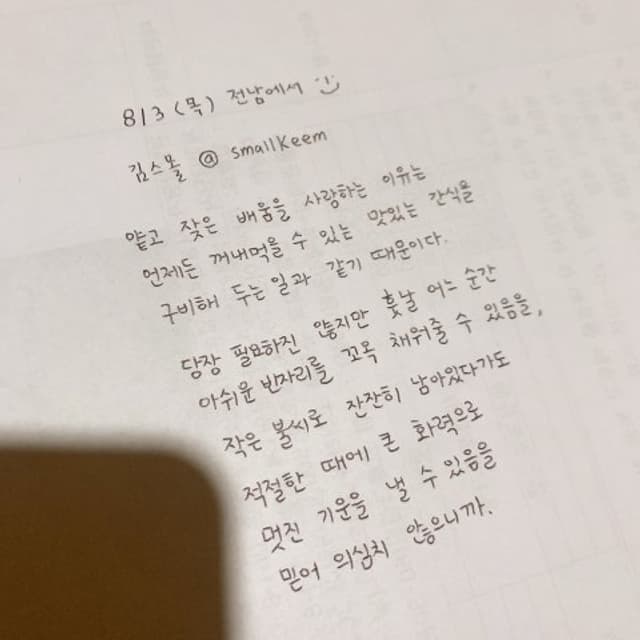 8/3 (목) 전남에서
김스몰 @ smallkeem
얕고 잦은 배움을 사랑하는 이유는
언제든 꺼내먹을 수 있는 맛있는 간식을
구비해 두는 일과 같기 때문이다.
당장 필요하진 않지만 훗날 어느 순간
아쉬운 반자리를 꼬옥 채워줄 수 있음을,
작은 불씨로 잔잔히 남아있다가도
적절한 때에 큰 화력으로
멋진 기운을 낼 수 있음을
믿어 의심치 않으니까.